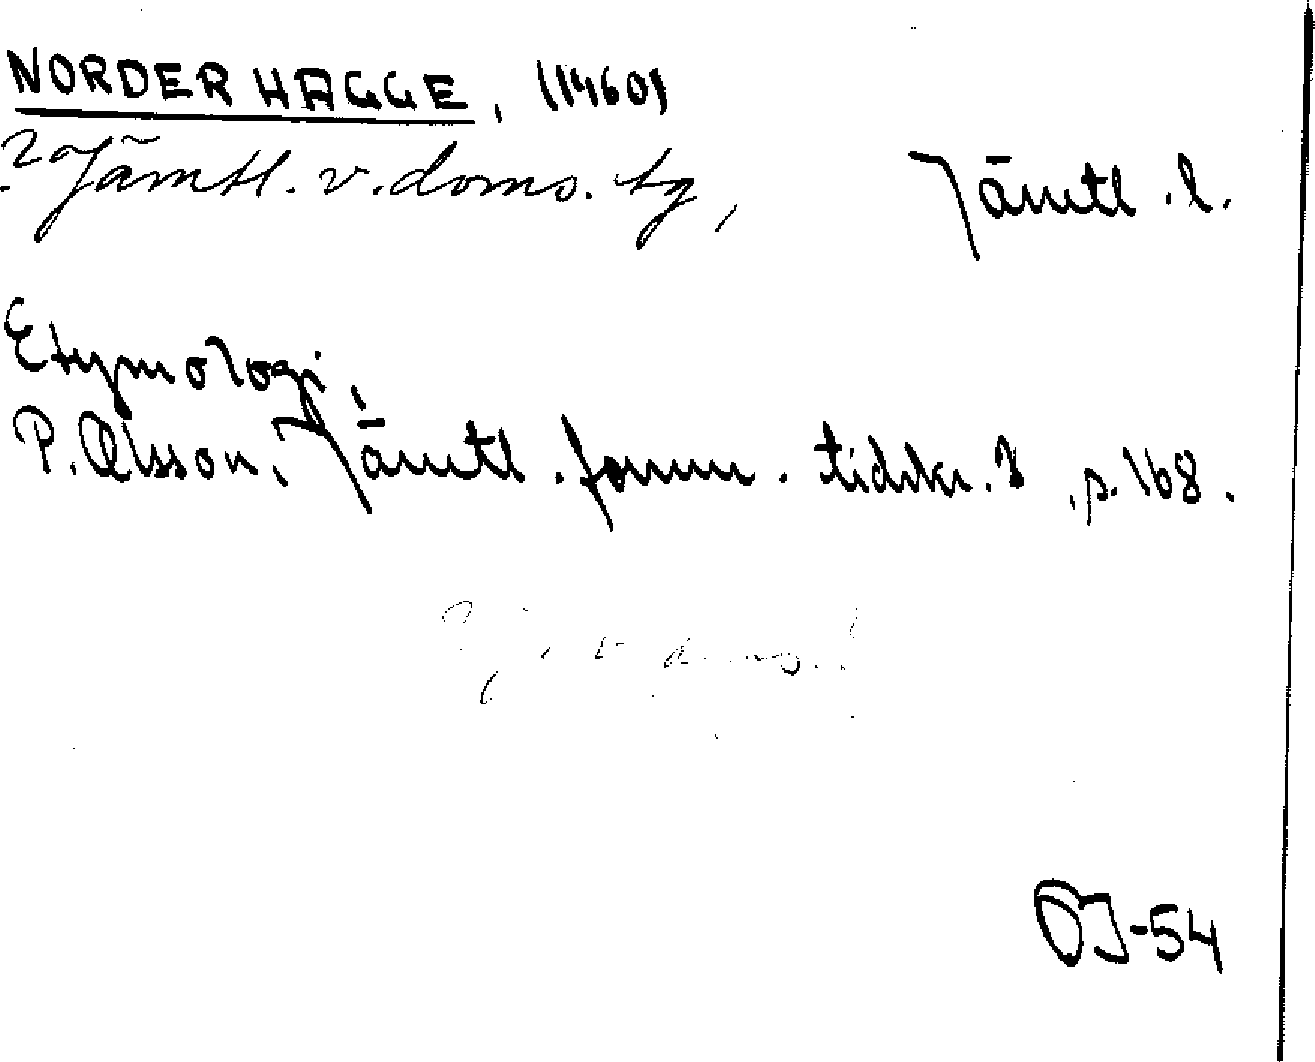 NORDERHAGGE, (1460)
? Jämtl. v. doms. tg,
Jämtl. l.
Etymologi,
P. Olsson, Jämtl. fornm. tidskr. 3, s. 168.
ÖJ-54